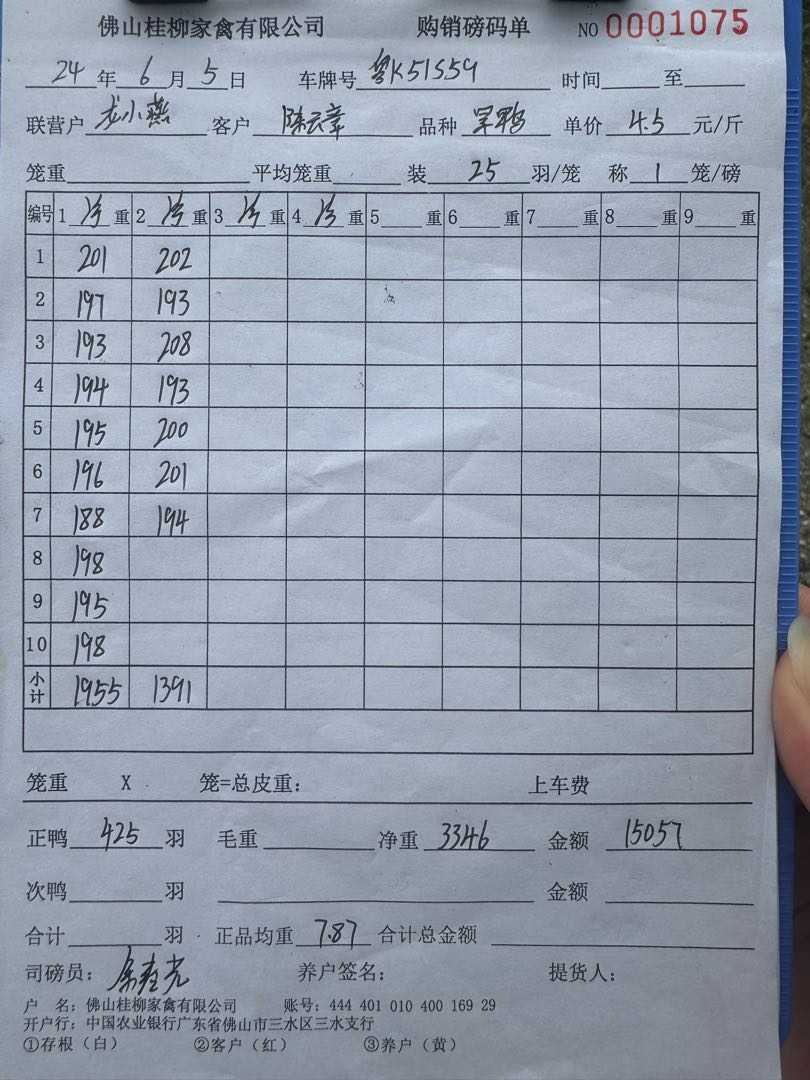 佛山桂柳家禽有限公司 购销磅码单 NO 0001075
24 年 6 月 5 日 车牌号 粤K51S59 时间 至
联营户 龙小燕 客户 陈云章 品种 单价 4.5 元/斤
笼重 平均笼重 装 25 羽/笼 称 1 笼/磅
编号 1 净 重 2 净 重 3 净 重 4 净 重 5 重 6 重 7 重 8 重 9 重
1 201 202
2 197 193
3 193 208
4 194 193
5 195 200
6 196 201
7 188 194
8 198
9 195
10 198
小计 1955 1391
笼重 X 笼=总皮重: 上车费
正鸭 425 羽 毛重 净重 3346 金额 15057
次鸭 羽 金额
合计 羽 正品均重 7.87 合计总金额
司磅员: 养户签名: 提货人:
户 名: 佛山桂柳家禽有限公司 账号: 444 401 010 400 169 29
开户行: 中国农业银行广东省佛山市三水区三水支行
①存根(白) ②客户(红) ③养户(黄)